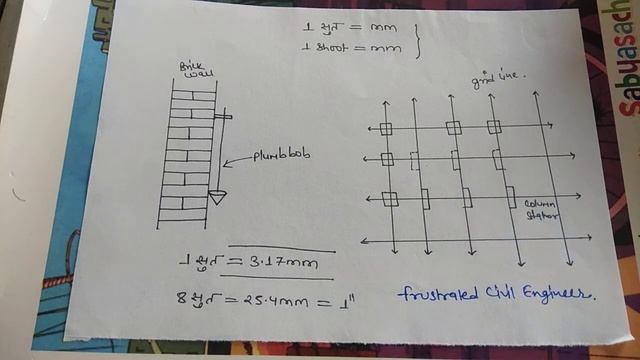 1 सुत = mm
1 shoot = mm
Brick
wall
grid line.
Plumb bob
column
1 सुत = 3.17mm
8 सुत = 25.4mm = 1"
frustrated Civil Engineer.
Sabyasach